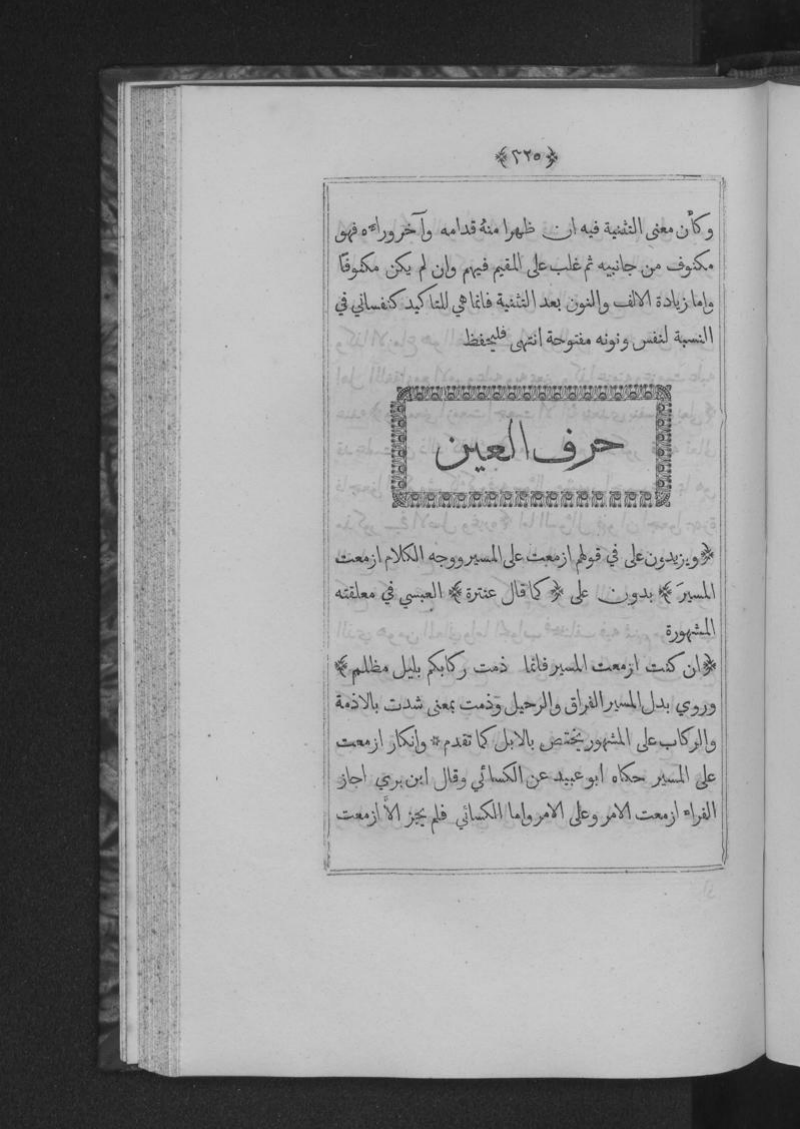 ﴿٣٢٥﴾
وكأن معنى التثنية فيه ان ظهرا منهُ قدامه وآخر وراءه فهو
مكنوف من جانبيه ثم غلب على المقيم فيهم وان لم يكن مكنوفًا
واما زيادة الالف والنون بعد التثنية فانما هي للتاكيد كنفساني في
النسبة لنفس ونونه مفتوحة انتهى فليحفظ
حرف العين
﴿ويزيدون على في قولهم ازمعت على المسير ووجه الكلام ازمعت
المسيرَ﴾ بدون على ﴿كما قال عنترة﴾ العبسي في معلقته
المشهورة
﴿ان كنت ازمعت المسير فانما ذمت ركابكم بليل مظلم﴾
وروي بدل المسير الفراق والرحيل وذمت بمعنى شدت بالاذمة
والركاب على المشهور يختص بالابل كما تقدم * وانكار ازمعت
على المسير حكاه ابو عبيد عن الكسائي وقال ابن بري اجاز
الفراء ازمعت الامر وعلى الامر واما الكسائي فلم يجز الاَّ ازمعت